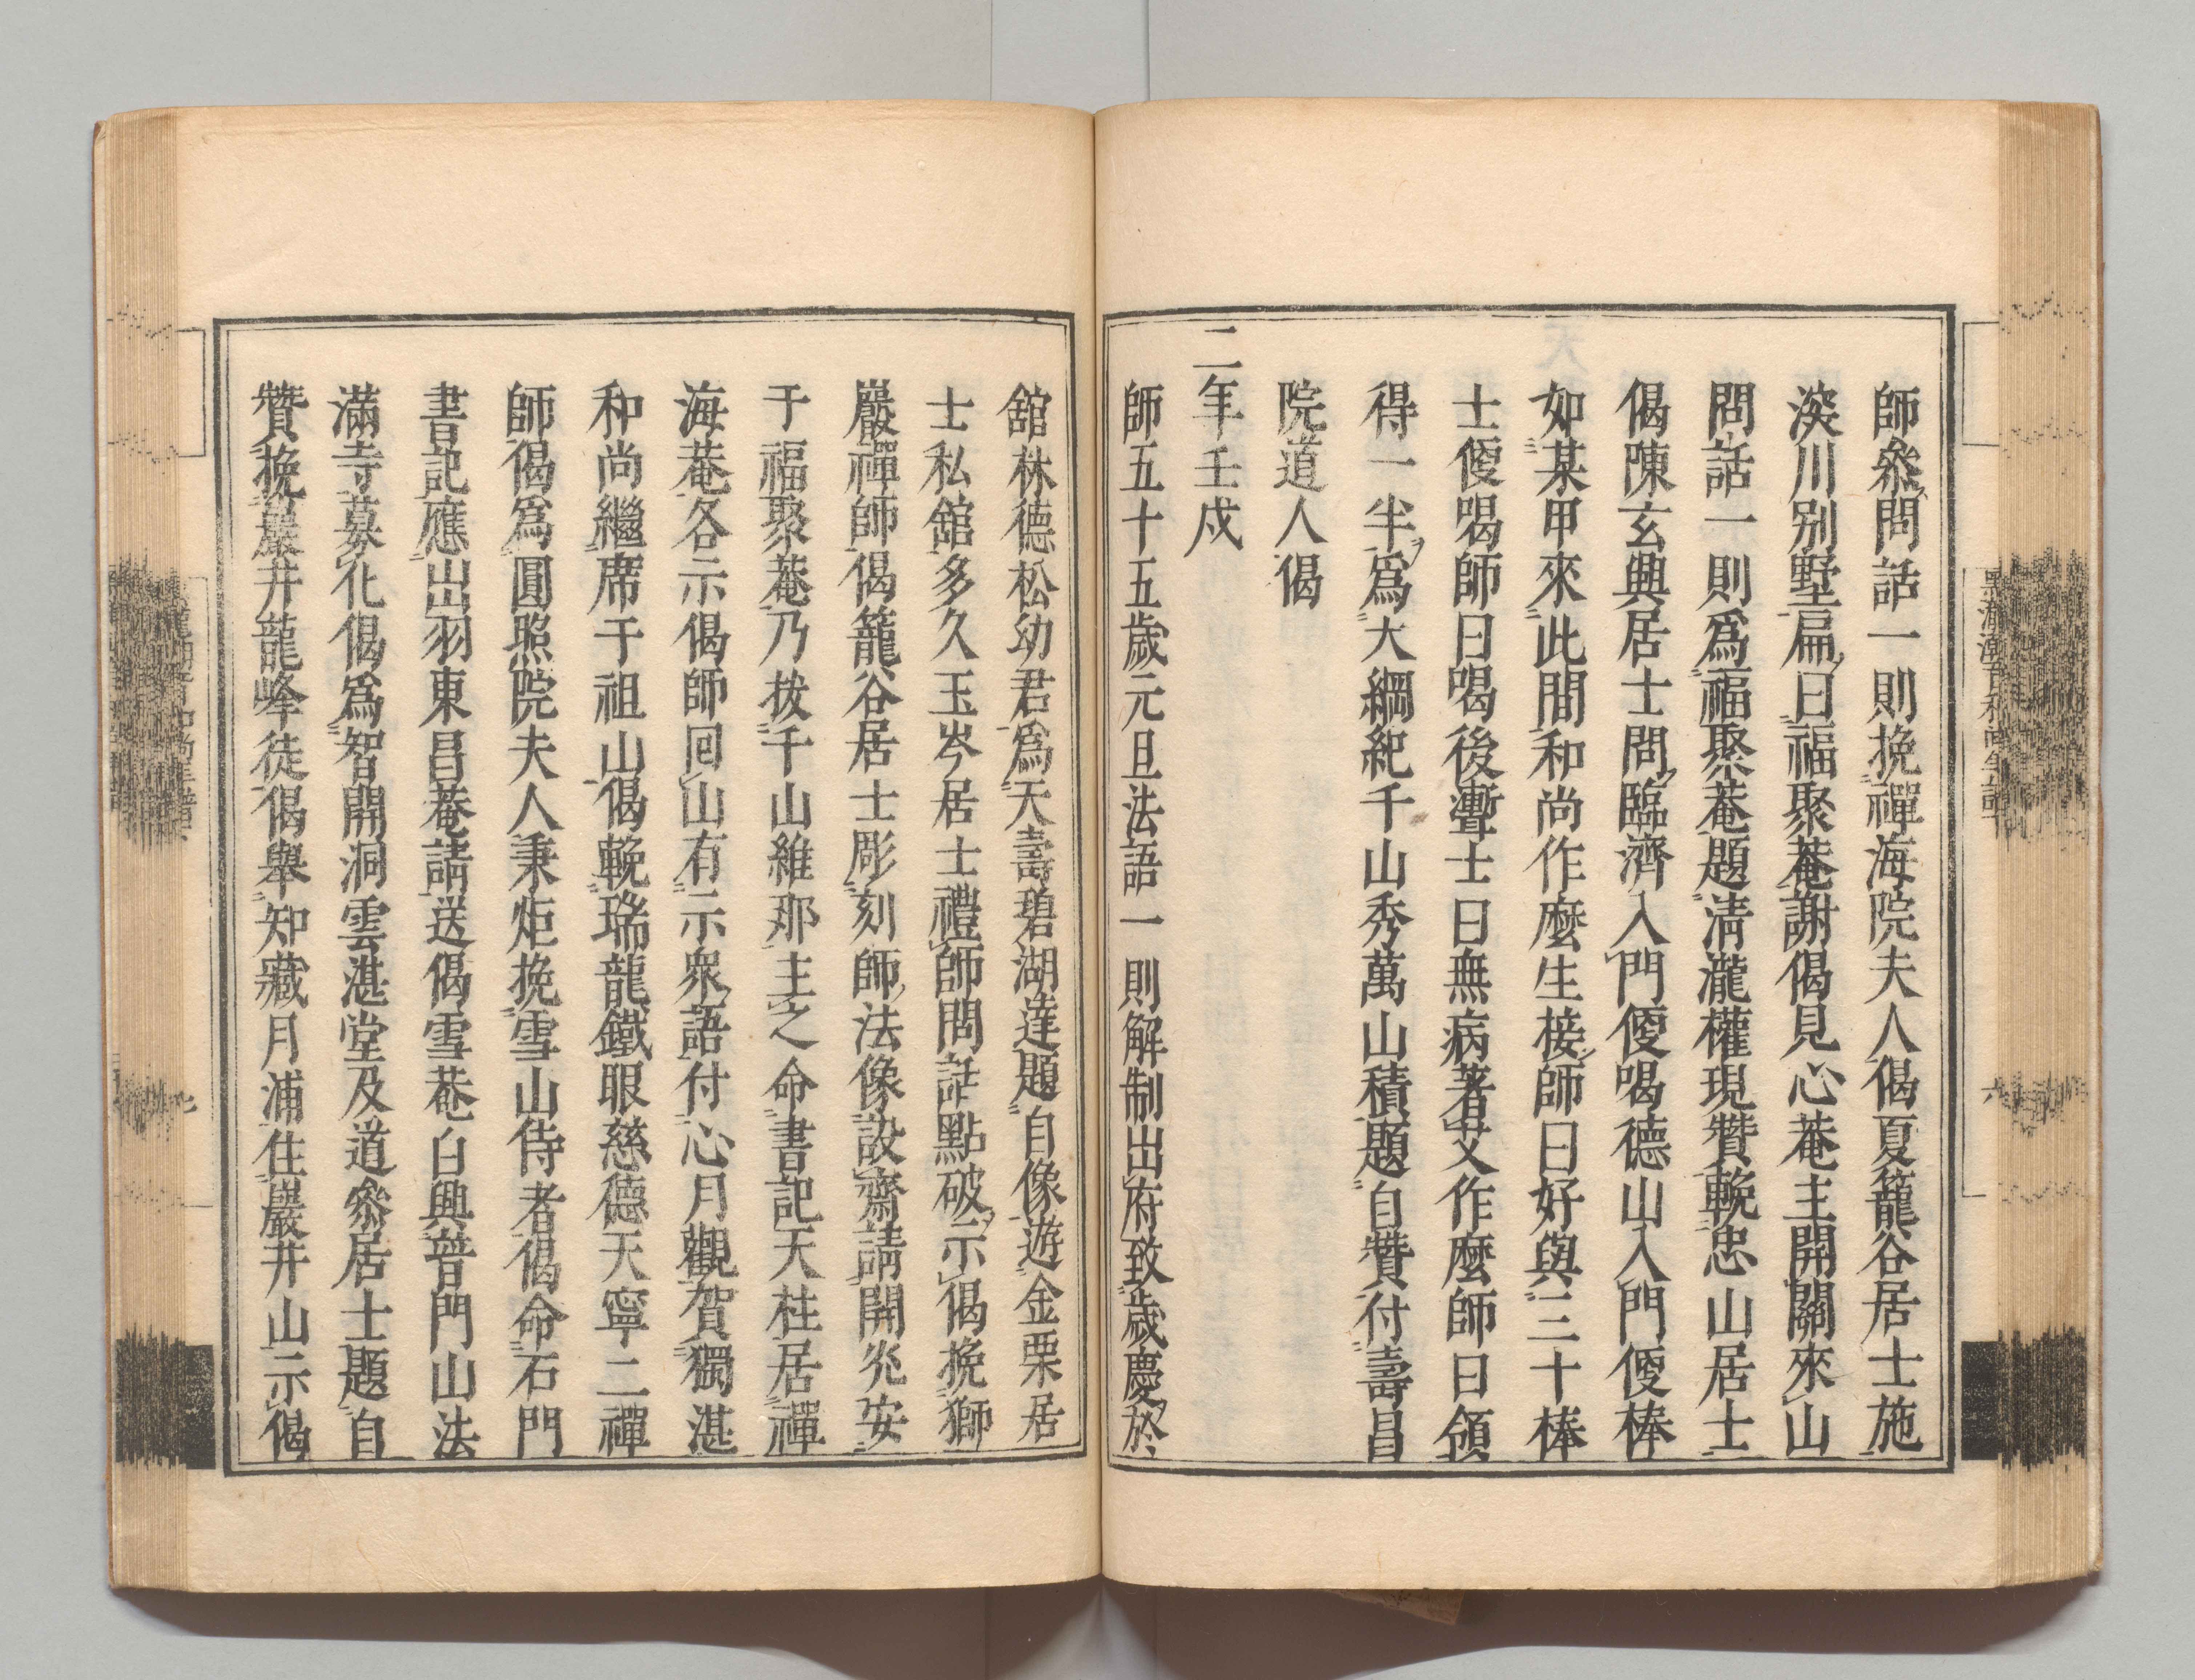 師叅問話一則挽禪海院夫人偈夏籠谷居士施
渓川別墅扁曰福聚菴謝偈見心菴主開關來山
問話一則爲福聚菴題清瀧權現贊輓忠山居士
偈陳玄興居士問臨濟入門便喝德山入門便棒
如某甲來此間和尚作麼生接師曰好與三十棒
士便喝師曰喝後聻士曰無病著艾作麼師曰領
得一半爲大綱紀千山秀萬山積題自贊付壽昌
院道人偈
二年壬戌
師五十五歲元旦法語一則解制出府致歲慶於
舘林德松幼君爲天壽碧湖達題自像遊金栗居
士私舘多久玉岑居士禮師問話點破示偈挽獅
巖禪師偈籠谷居士彫刻師法像設齋請開光安
于福聚菴乃拔千山維那主之命書記天柱居禪
海菴各示偈師回山有示衆語付心月觀賀獨湛
和尚繼席于祖山偈輓瑞龍鐵眼慈德天寧二禪
師偈爲圓照院夫人秉炬挽雪山侍者偈命石門
書記應出羽東昌菴請送偈雪菴白興普門山法
滿寺募化偈爲智開洞雲湛堂及道叅居士題自
贊挽巖井龍峰徒偈舉知藏月浦住巖井山示偈